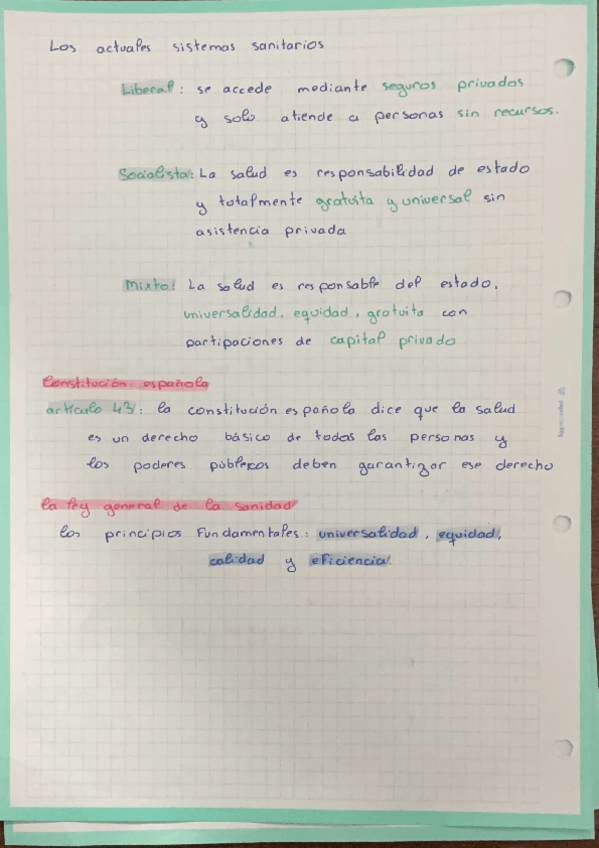 Los actuales sistemas sanitarios
Liberal: se accede mediante seguros privados
y solo atiende a personas sin recursos.
Socialista: La salud es responsabilidad de estado
y totalmente gratuita y universal sin
asistencia privada
Mixto: La salud es responsable del estado,
universalidad, equidad, gratuita con
partipaciones de capital privado
Constitución española
artículo 43: la constitución española dice que la salud
es un derecho básico de todas las personas y
los poderes públicos deben garantizar ese derecho
la ley general de la sanidad
los principios Fundamentales: universalidad, equidad,
calidad y eficiencia.